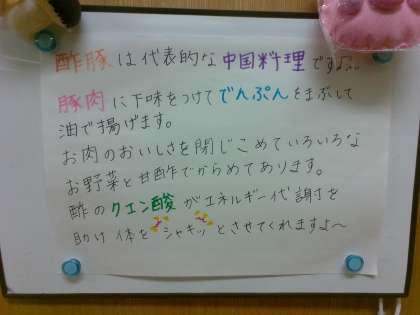 酢豚は代表的な中国料理です♪。
豚肉に下味をつけてでんぷんをまぶして
油で揚げます。
お肉のおいしさを閉じこめていろいろな
お野菜と甘酢でからめてあります。
酢のクエン酸がエネルギー代謝を
助け体をシャキッとさせてくれますよ～